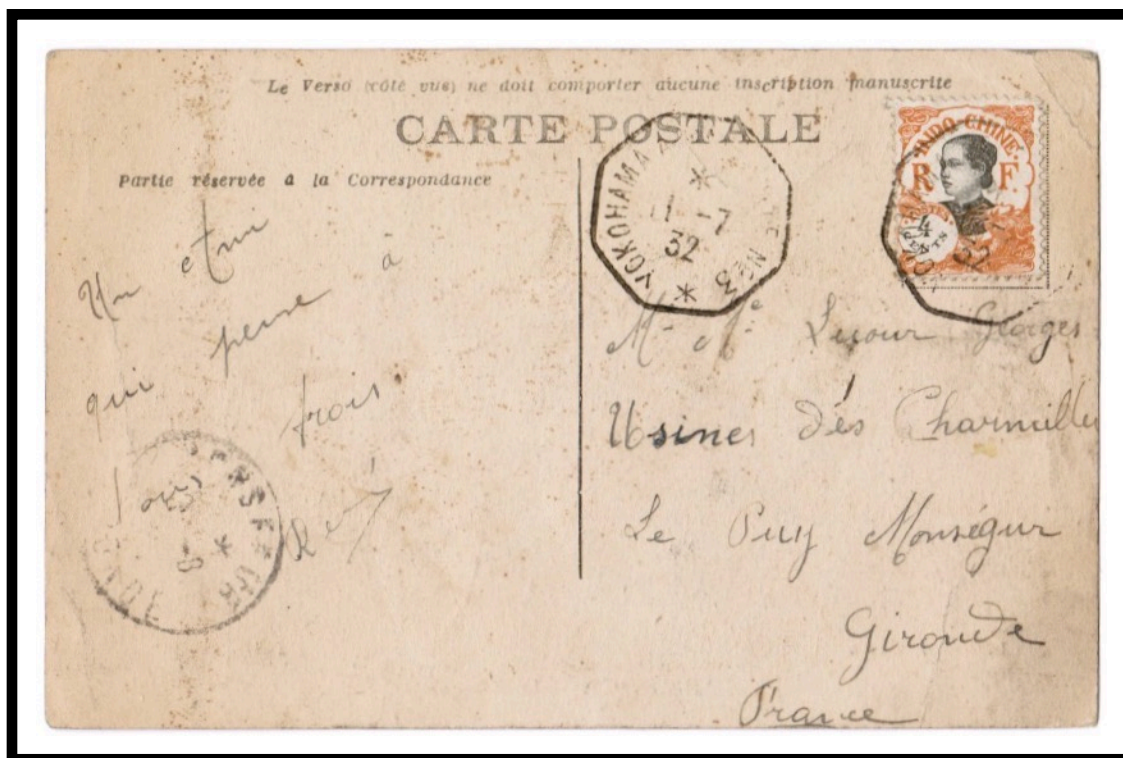 Le Verso (côté vue) ne doit comporter aucune inscription manuscrite
CARTE POSTALE
Partie réservée à la Correspondance
Un
qui pense à
trois
YOKOHAMA
Nº 3
11 -7
32
INDO-CHINE
R F
POSTES
4
CENTS
32
Mr Me Georges
Usines dés Charmilles
Le Puy Monségur
Gironde
France